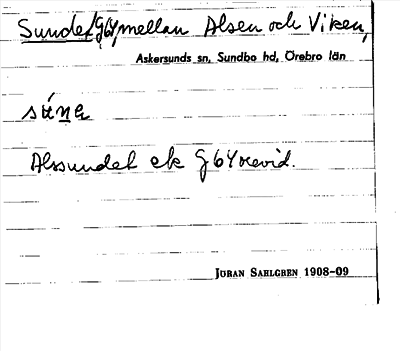 Sundet/G64/mellan Alsen och Viken,
Askersunds sn, Sundbo hd, Örebro län
súnɐ
Alssundet ek G64 revid.
Jöran Sahlgren 1908-09